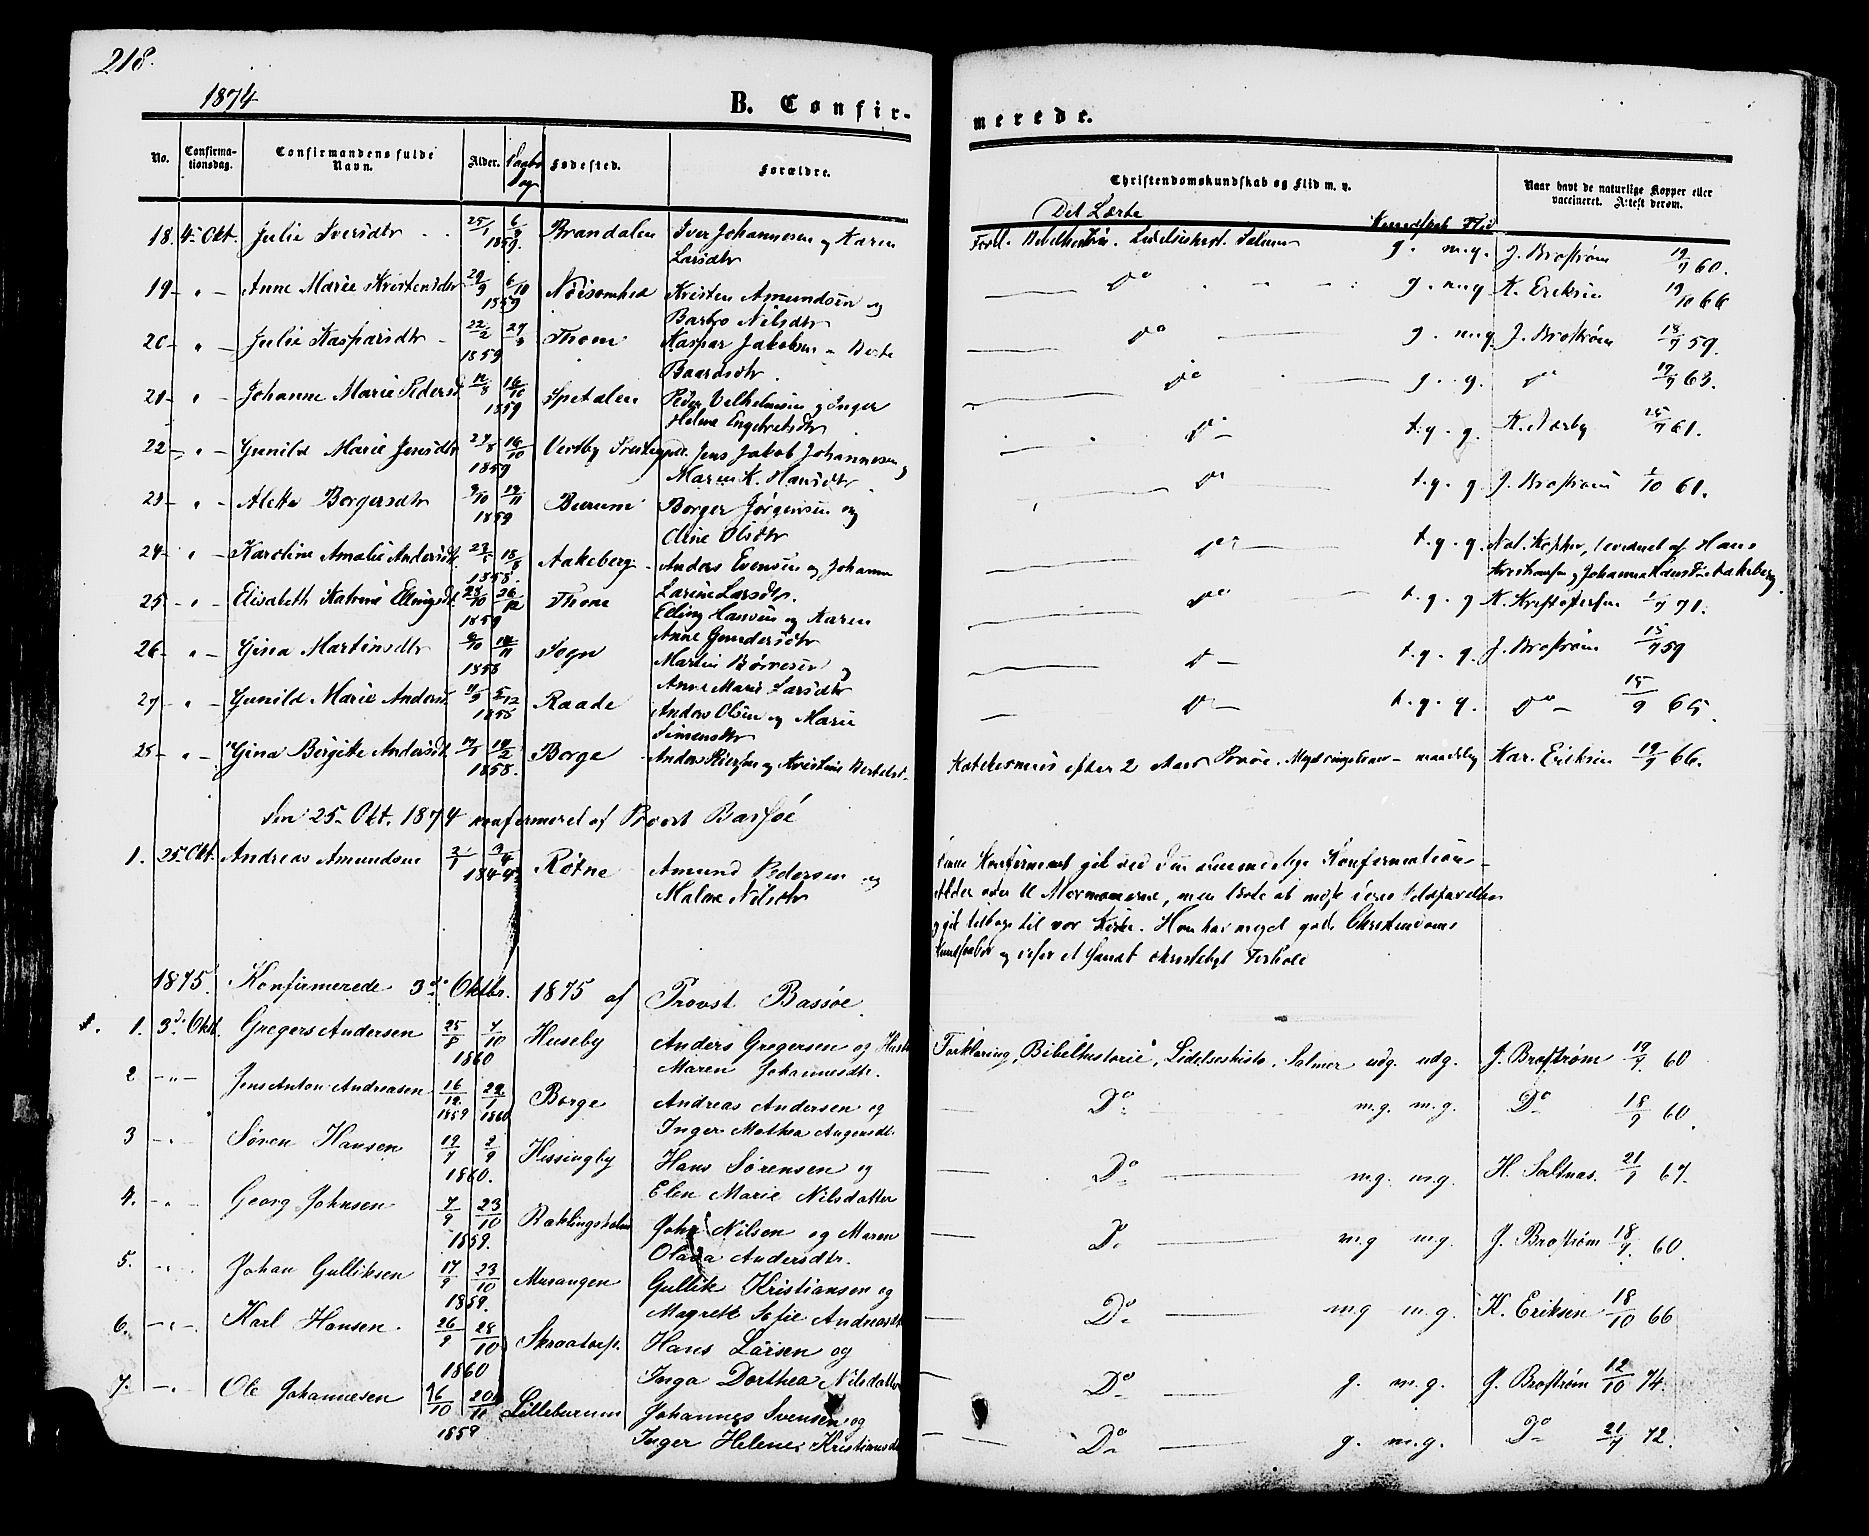 218.
1874
B. Confir-
merede.
No.
Confirma-
tionsdag.
Confirmandens fulde
Navn.
Alder.
Daabs
Dag
Fødested.
Forældre.
Christendomskundskab og Flid m. v.
Naar havt de naturlige Kopper eller
vaccineret. Attest derom.
Det Lærte
Kundskab Flid
18. 4de Okt. Julie Iversdtr 25/1 6/3 1859. Brandalen Iver Johannesen og Karen
Larsdtr
Forkl. Bibelhistorie. Lidelseshist. Salmer g. m.g. J. Brostrøm 19/9 60.
19 - " - Anne Marie Kristensdtr 29/9 6/10 1859 Kristen Amundsen og
Barbro Nilsdtr
Do g. m.g K. Eriksen 19/10 66
20 - " - Julie Kaspersdtr 22/2 1859 Thom Kaspar Jakobsen - Berte
Baardsdtr
Do g. m.g. J. Brostrøm 18/9 59.
21 - " - Johanne Marie Pedersd 16/10 1859 Spetalen Peder Vilhelmsen og Inger
Helene Engebretsdtr
Do g. g. Do 17/9 63.
22 - " - Gunild Marie Jensdtr 16/10 1859 Jens Jakob Johannesen og
Maren K. Hansdtr
Do t.g. g. K. Nærby 25/9 61.
23 - " - Alette Borgersdtr 9/10 19/11 1859 Burum Borger Jørgensen og
Oline Olsdtr
Do t.g. g J. Brostrøm 1/10 61.
24 - " - Karoline Amalie Andersdt. 18/8 1858. Aakeberg Anders Evensen og Johanne
Larine Larsdtr.
Do t.g. g. Nat. Kopper, bevidnet af Hans
Kristiansen og Johannes Aakeberg
25 - " - Elisabeth Katrine Ellingsdt. 23/10 26/12 1859 Thom Elling Hansen og Karen
Anne Gundersdtr
Do t.g. g K. Kristofersen 71.
26 - " - Gina Martinsdtr 6/10 14/11 1858 Sogn Martin Børresen og
Anne Marie Larsdtr
Do t.g. g. J. Brostrøm 15/9 59
27 - " - Gunild Marie Andersd. 5/12 1858 Raade Anders Olsen og Marie
Simensdtr
Do t.g. g. Do 15/9 65.
28 - " - Gina Birgitte Andersdt. 14/2 1858. Borge Anders Pedersen og Kristine Bertelsd.
Katekismus efter 2 Aars Prøve. - maadelig Kar. Eriksen 19/9 66.
den 25. Okt. 1874 konfirmeret af Provst Bassøe
1. 25 Okt. Andreas Amundsen 3/4 1844. Røtne Amund Pedersen og
Malene Nilsdtr
Denne Konfirmant gik ved den almindelige Konfirmations-
Alder over til Mormonerne, men lærte at indse deres Vildfarelser
og gik tilbage til vor Kirke. Han har meget gode Christendoms
kundskaber og viser et sandt christeligt Forhold
1875. Konfirmerede 3die Oktbr. 1875 af Provst Bassøe.
1. 3die Oktb. Gregers Andersen 25/8 7/10 1860 Huseby Anders Gregersen og Hustr
Maren Johannesdtr.
Forklaring, Bibelhistorie, Lidelseshisto. Salmer udg. udg. J. Brostrøm 19/9 60
2 - " - Jens Anton Andreasen 16/12 1859 22/1 1860 Borge Andreas Andersen og
Inger Mathea Augensdt.
Do m.g. m.g. Do 18/9 60.
3 - " - Søren Hansen 19/7 2/9 1860. Kissingby Hans Sørensen og
Elen Marie Nilsdatter
Do m.g. m.g. H. Saltnas. 21/9 67.
4. - " - Georg Johnsen 7/9 23/10 1859. Røklingsholm John Nilsen og Maren
Olava Andersdtr.
Do m.g m.g. J. Brostrøm 18/9. 60.
5. - " - Johan Gulliksen 17/9 23/10 1859. Musangen Gullik Kristiansen og
Magrete Sofie Andreasdt
Do m.g m.g. K. Eriksen 18/10 66
6. - " - Karl Hansen 26/9 28/10 1860 Skraatorp. Hans Larsen og
Inga Dorthea Nilsdatter
Do g. m.g. J. Brostrøm 12/10 74.
7. - " - Ole Johannesen 16/10 20/11 1859 Lilleburum Johannes Svensen og
Inger Helene Kristiansdt
Do g. m.g. Do 21/9 72.